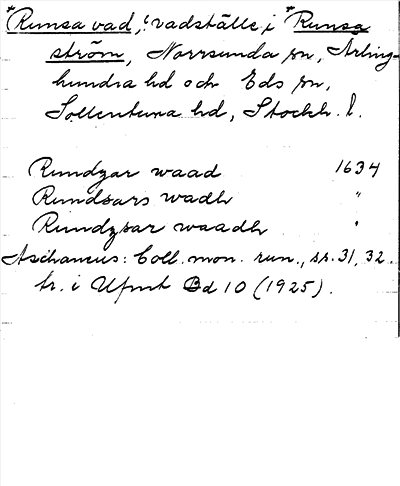 *Runsa vad, vadställe i *Runsa
ström, Norrsunda sn, Ärling-
hundra hd och Eds sn,
Sollentuna hd, Stockh. l.
Rundzar waad 1634
Rundsars wadh "
Rundzsar waadh "
Aschaneus: Coll. mon. run., sr. 31, 32.
tr. i Ufmt Bd 10 (1925).